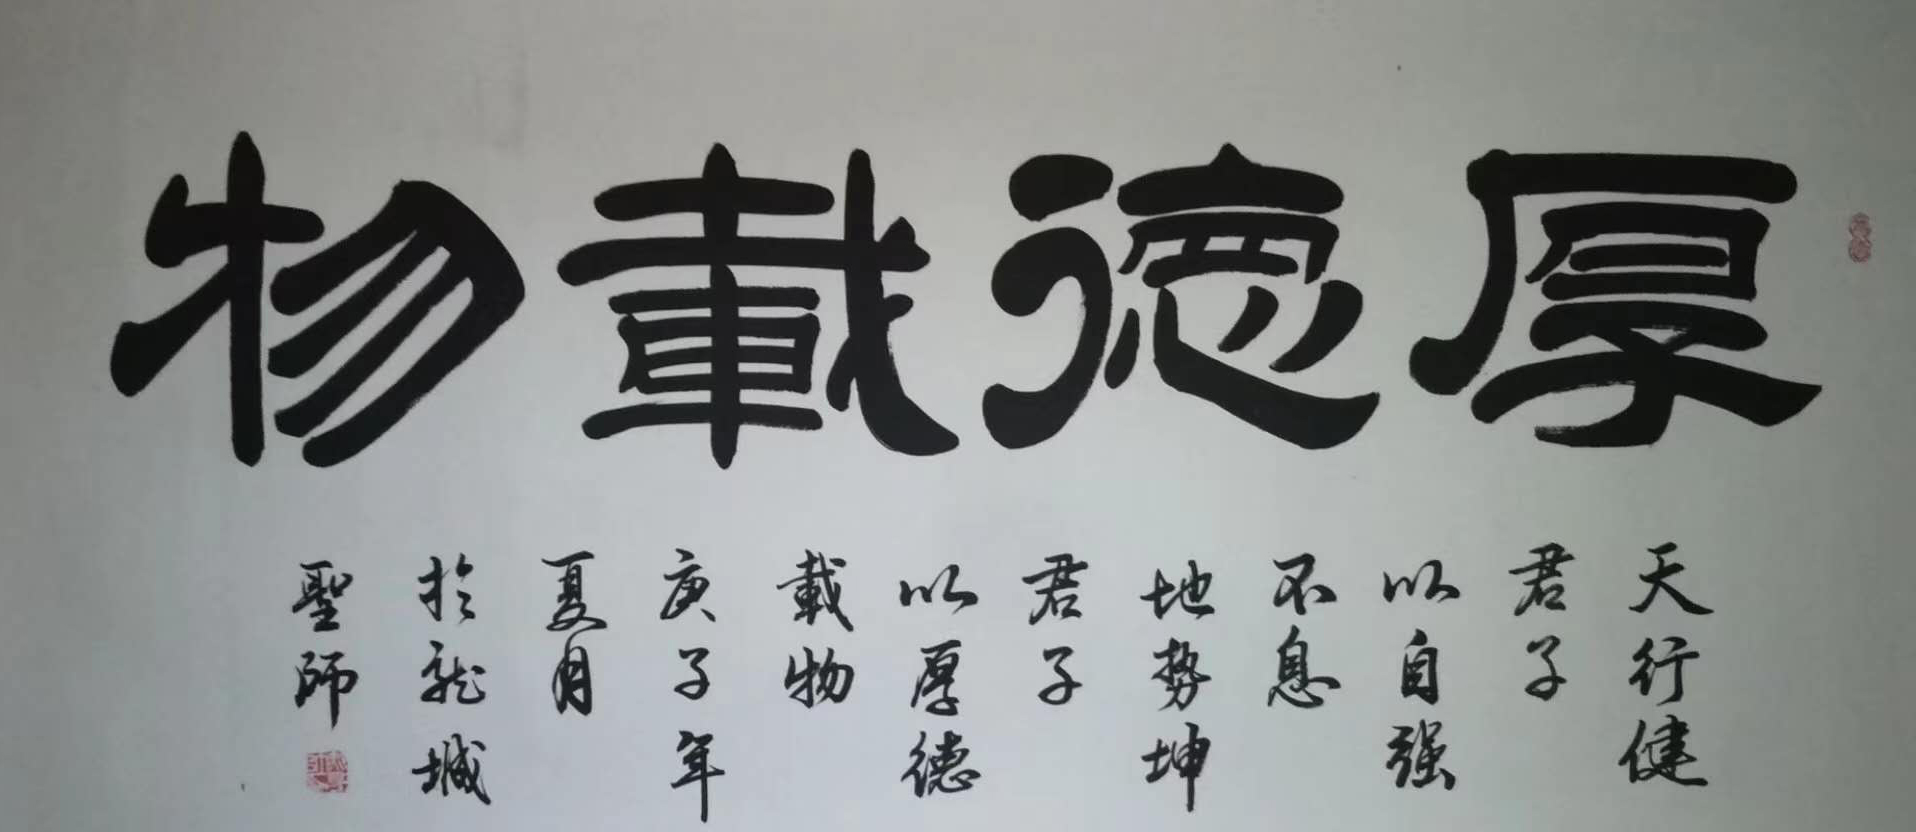 厚德載物
天行健
君子
以自强
不息
地势坤
君子
以厚德
載物
庚子年
夏月
於龙城
聖師